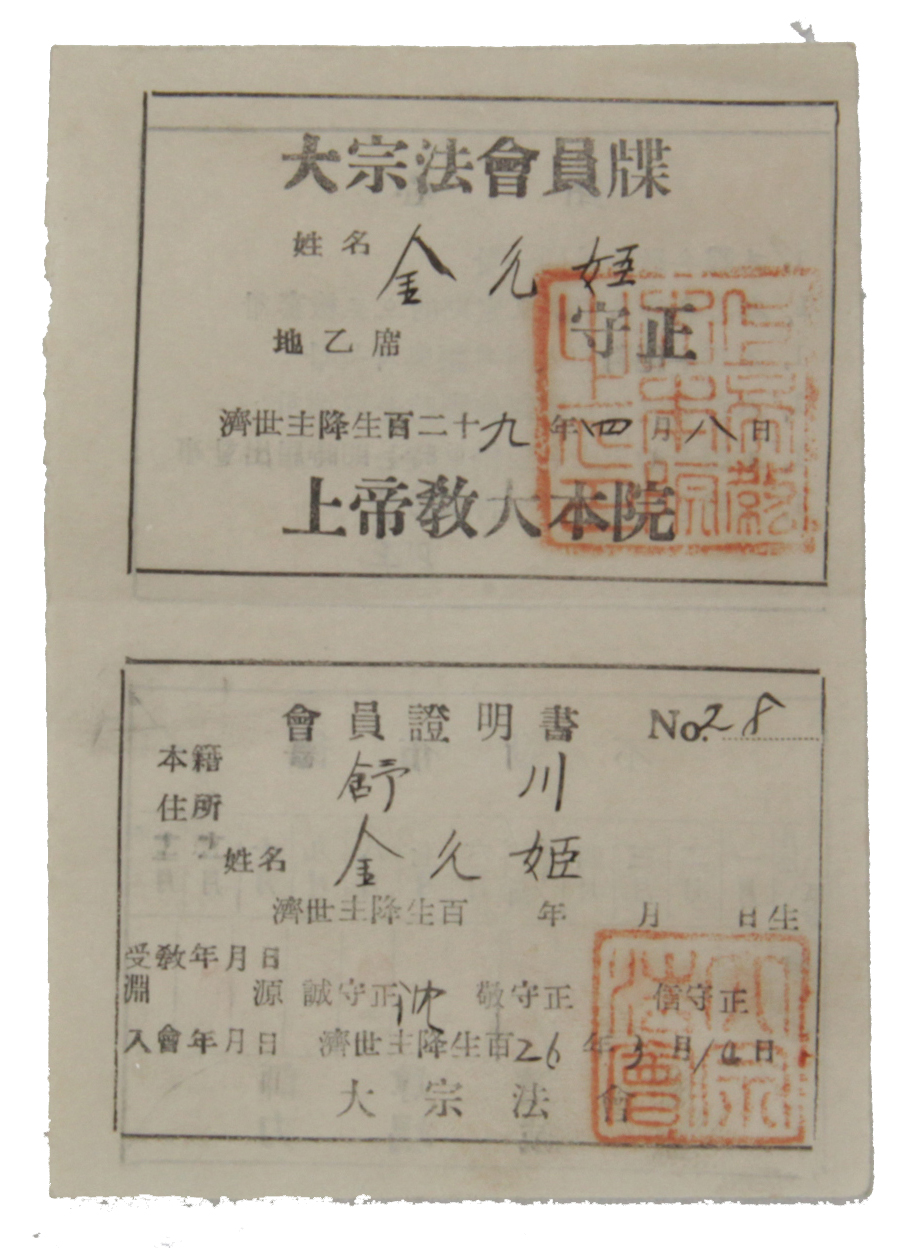 大宗法會員牒
姓名 金允姬
地乙席 守正
濟世主降生百二十九年四月八日
上帝敎大本院
會員證明書 No. 28
本籍 舒川
住所
姓名 金允姬
濟世主降生百 年 月 日生
受敎年月日
淵源 誠守正 沈 敬守正 信守正
入會年月日 濟世主降生百26年3月10日
大宗法會